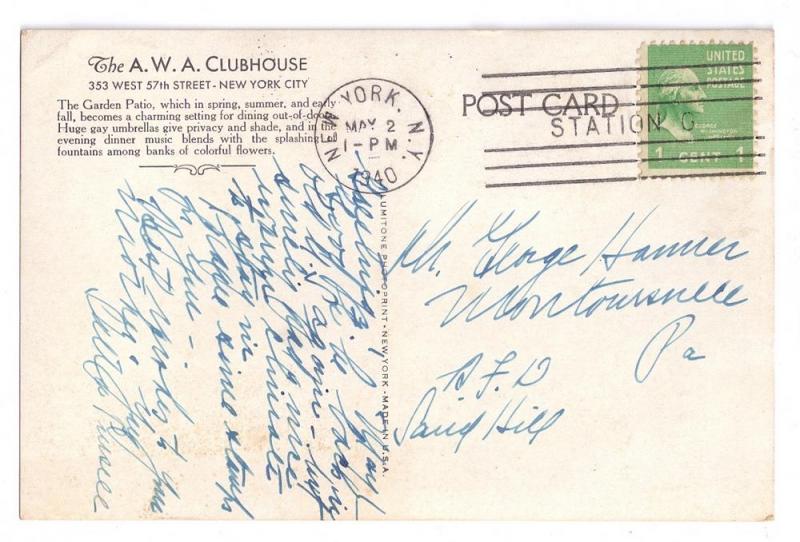 The A. W. A. CLUBHOUSE
353 WEST 57th STREET - NEW YORK CITY
The Garden Patio, which in spring, summer, and early
fall, becomes a charming setting for dining out-of-doors.
Huge gay umbrellas give privacy and shade, and in the
evening dinner music blends with the splashing
fountains among banks of colorful flowers.
NEW YORK, N.Y.
MAY 2
1-PM
1940
POST CARD
STATION C
UNITED
STATES
POSTAGE
GEORGE
WASHINGTON
1 CENT 1
LUMITONE PHOTOPRINT - NEW YORK - MADE IN U.S.A.
Mr. George Hanner
Montoursville
Pa
R.F.D
Sand Hill
Good to be back in
again
climate
to stay in
Have some stamps
for you
Best wishes to you